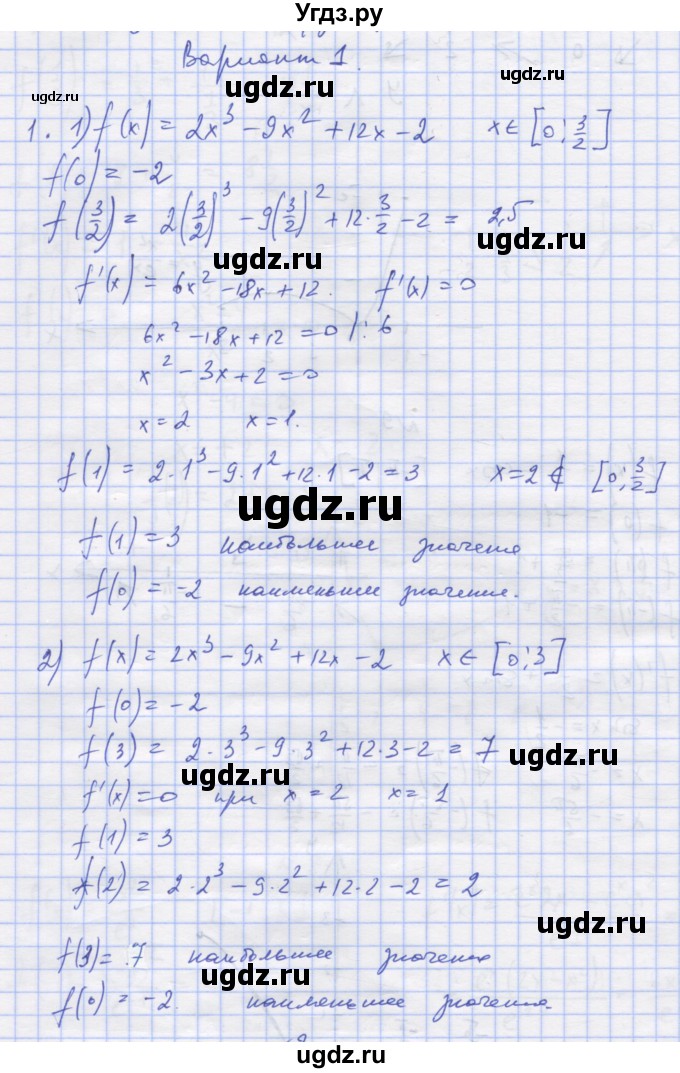 Угдз.ру
Вариант 1.
ugdz.ru
ugdz.ru
1. 1) f(x) = 2x³ - 9x² + 12x - 2 x ∈ [0; 3/2]
ugdz.ru
f(0) = -2
f(3/2) = 2(3/2)³ - 9(3/2)² + 12·3/2 - 2 = 2,5
ugdz.ru
ugdz.ru
f'(x) = 6x² - 18x + 12. f'(x) = 0
6x² - 18x + 12 = 0 |: 6
ugdz.ru
x² - 3x + 2 = 0
x = 2 x = 1.
f(1) = 2·1³ - 9·1² + 12·1 - 2 = 3 x = 2 ∉ [0; 3/2]
ugdz.ru
f(1) = 3 наибольшее значение
f(0) = -2 наименьшее значение.
ugdz.ru
2) f(x) = 2x³ - 9x² + 12x - 2 x ∈ [0; 3]
f(0) = -2
f(3) = 2·3³ - 9·3² + 12·3 - 2 = 7
ugdz.ru
ugdz.ru
f'(x) = 0 при x = 2 x = 1
f(1) = 3
f(2) = 2·2³ - 9·2² + 12·2 - 2 = 2
ugdz.ru
f(3) = 7 наибольшее значение
ugdz.ru
f(0) = -2. наименьшее значение.
ugdz.ru